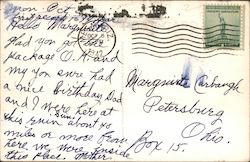 mon. Oct.
Hello Marguerite
glad you got the
package O.K. and
my you sure had
a nice birthday Dad
and I were here at
this ruin about 40
miles or more from
here, we were inside
this place. Mother
Marguerite
Petersburg
Ohio.
Box 15.